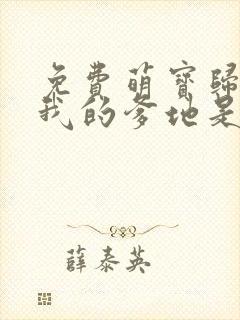 免費萌寶歸
我的爹地是
薛泰英